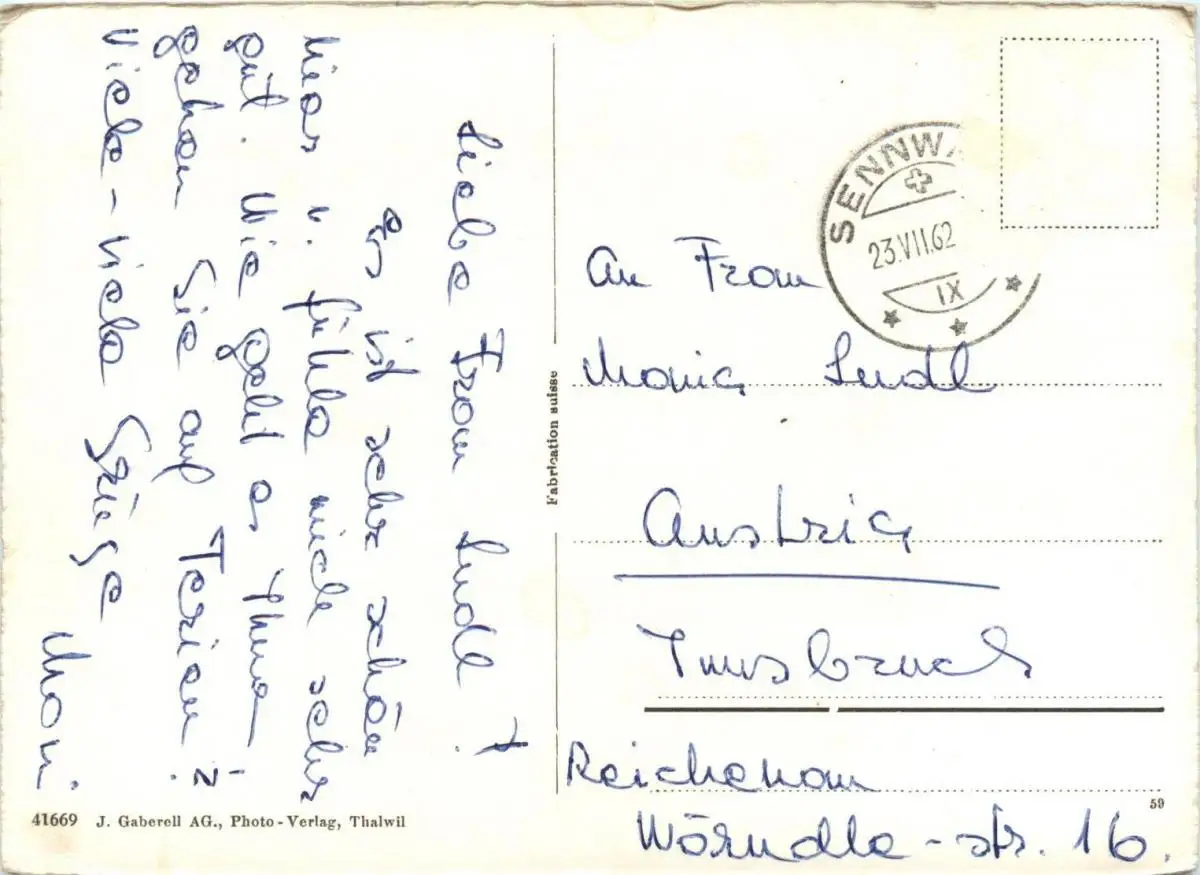 Liebe Frau Ludl!
Es ist sehr schön
hier u. fühle mich sehr
gut. Wie geht es Ihnen -
gehen Sie auf Ferien?
Viele - viele Grüsse
Moni
41669 J. Gaberell AG., Photo-Verlag, Thalwil
Fabrication suisse
SENNWA
23.VII.62
IX
An Frau
Maria Ludl
Austria
Innsbruck
Reichenau
Wörndle-str. 16.
59